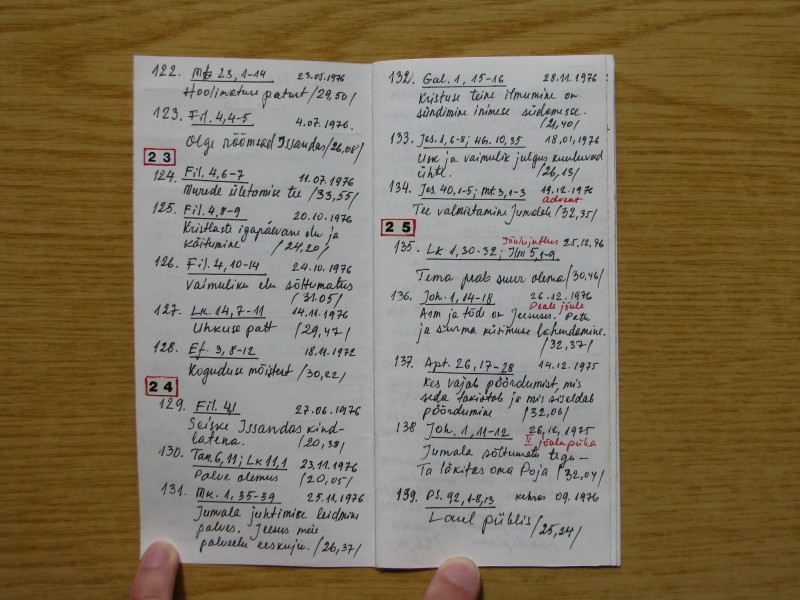 122. Mt 23, 1-14 23.05.1976
Hoolimatuse patust /29,50/
123. Fil. 4,4-5 4.07.1976.
Olge rõõmsad Issandas /26,08/
23
124. Fil. 4,6-7 11.07.1976
Murede ületamise tee /33,55/
125. Fil. 4,8-9 20.10.1976
Kristlaste igapäevane elu ja
käitumine /24,20/
126. Fil. 4,10-14 24.10.1976
Vaimuliku elu sõltumatus
/31.05/
127. Lk. 14,7-11 14.11.1976
Uhkuse patt /29,47/
128. Ef. 3,8-12 18.11.1972
Koguduse mõistest /30,22/
24
129. Fil. 4,1 27.06.1976
Seiske Issandas kind-
latena. /20,38/
130. Tan. 6,11; Lk 11,1 23.11.1976
Palve olemus /20,05/
131. Mk. 1, 35-39 25.11.1976
Jumala juhtimise leidmine
palves. Jeesus meie
palveelu eeskuju. /26,37/
132. Gal. 1, 15-16 28.11.1976
Kristuse teine ilmumine on
sündimine inimese südamesse.
/21,40/
133. Jes. 1,6-8; 10,35 18.01.1976
Usk ja vaimulik julgus kuuluvad
ühte. /26,13/
134. Jes 40,1-5; Mt 3,1-3 19.12.1976
advent
Tee valmistamine Jumalale /32,35/
25
Jõulujutlus 25.12.76
135. Lk 1,30-32; Ilm 5,1-9
Tema peab suur olema /30.46/
136. Joh. 1,14-18 26.12.1976
Peale jõule
Arm ja tõde on Jeesuses. Patu
ja surma küsimuse lahendamine.
/32,37/
137. Apt. 26, 17-28 14.12.1975
Kes vajab pöördumist, mis
seda takistab ja mis sisaldab
pöördumine /32,06/
138 Joh. 1,11-12 26.12.1975
II jõulupüha
Jumala sõltumatu tegu -
Ta läkitas oma Poja /32,04/
139. Ps. 92,1-8,13 09.1976
Laul pühlis /25,24/